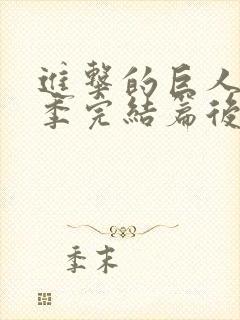 進擊的巨人
季完結篇後
季末